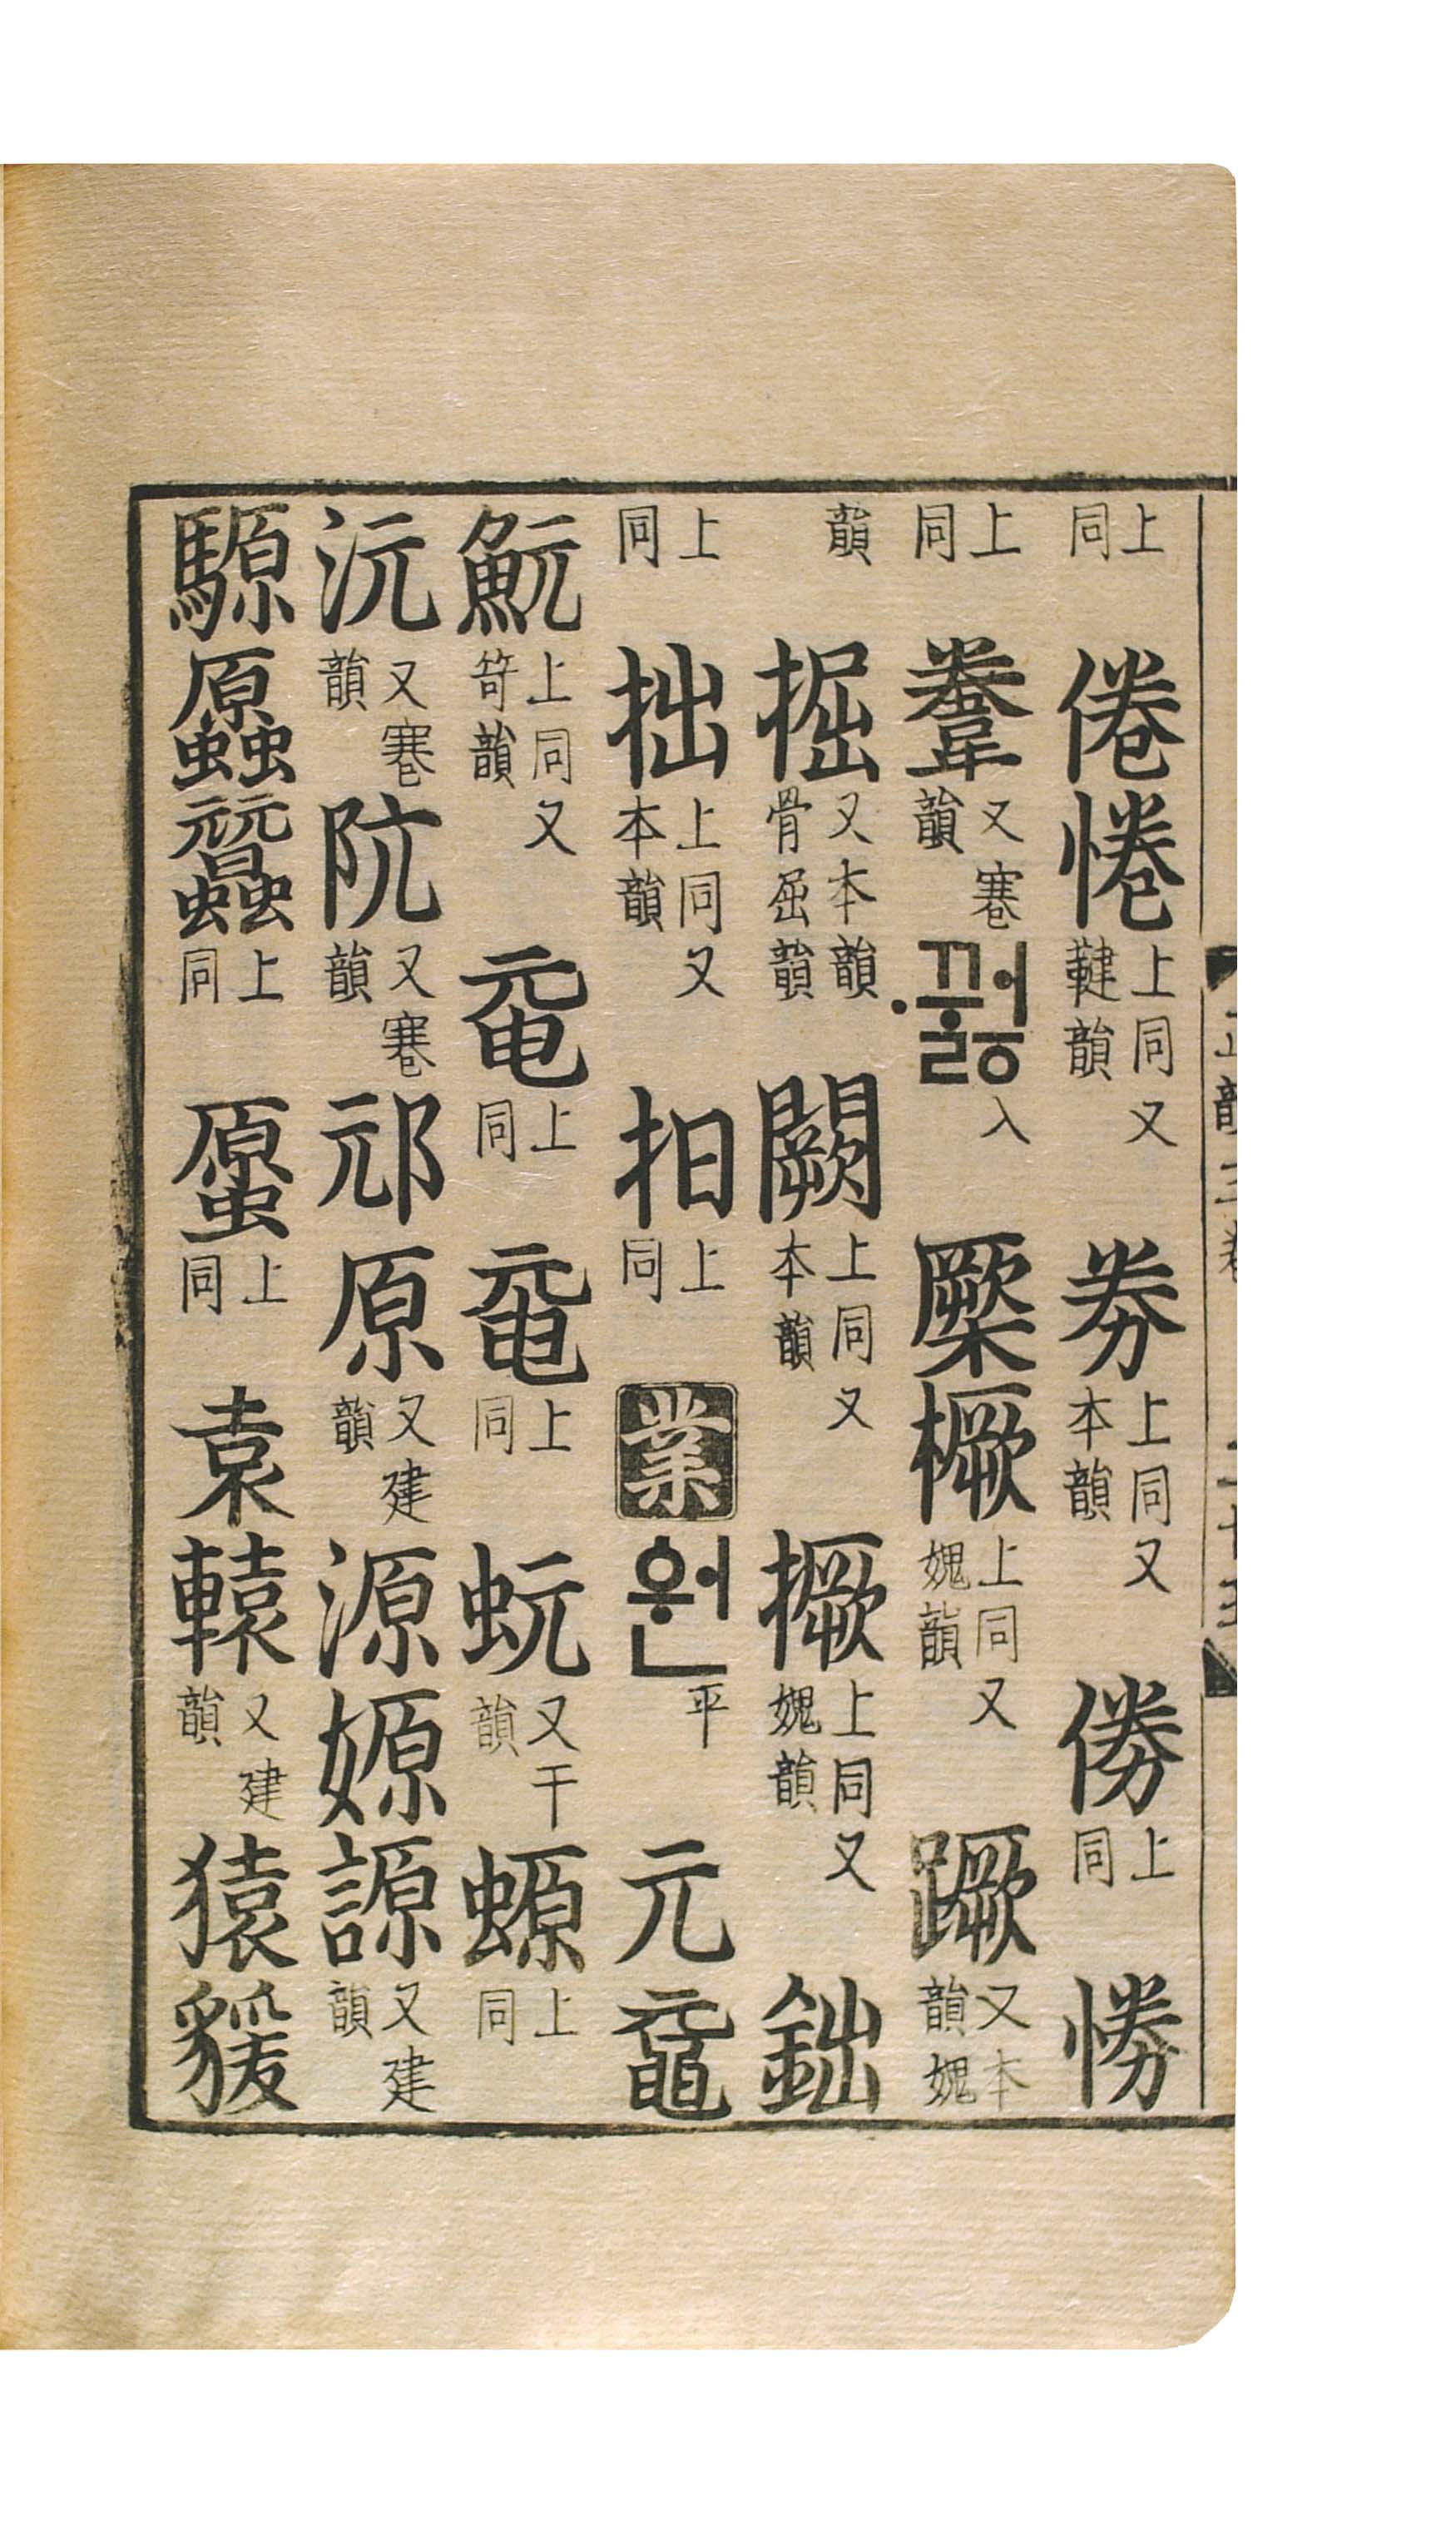 上同倦惓上同又鞬韻券上同又本韻𠊩上同㥃
上同韏又寋韻·ᄁᆑᇙ入橜橛上同又媿韻蹶又本韻媿
韻掘又本韻骨屈韻闕上同又本韻撅上同又媿韻鈯
上同拙上同又本韻抇上同業원平元黿
魭上同又笴韻𪓟上同𪓟上同蚖又干韻螈上同
沅又寋韻阮又寋韻邧原又建韻源嫄謜又建韻
騵蠠上同䖠上同袁轅又建韻猿貁
正韻三卷 二十五